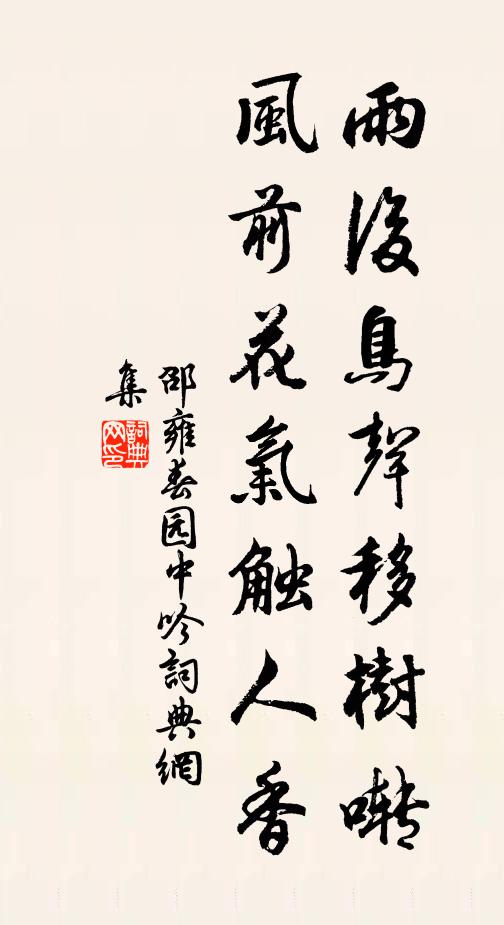 雨後鳥聲移樹囀
風前花氣触人香
邵雍春园中吟詞典網
集
詞典
网印